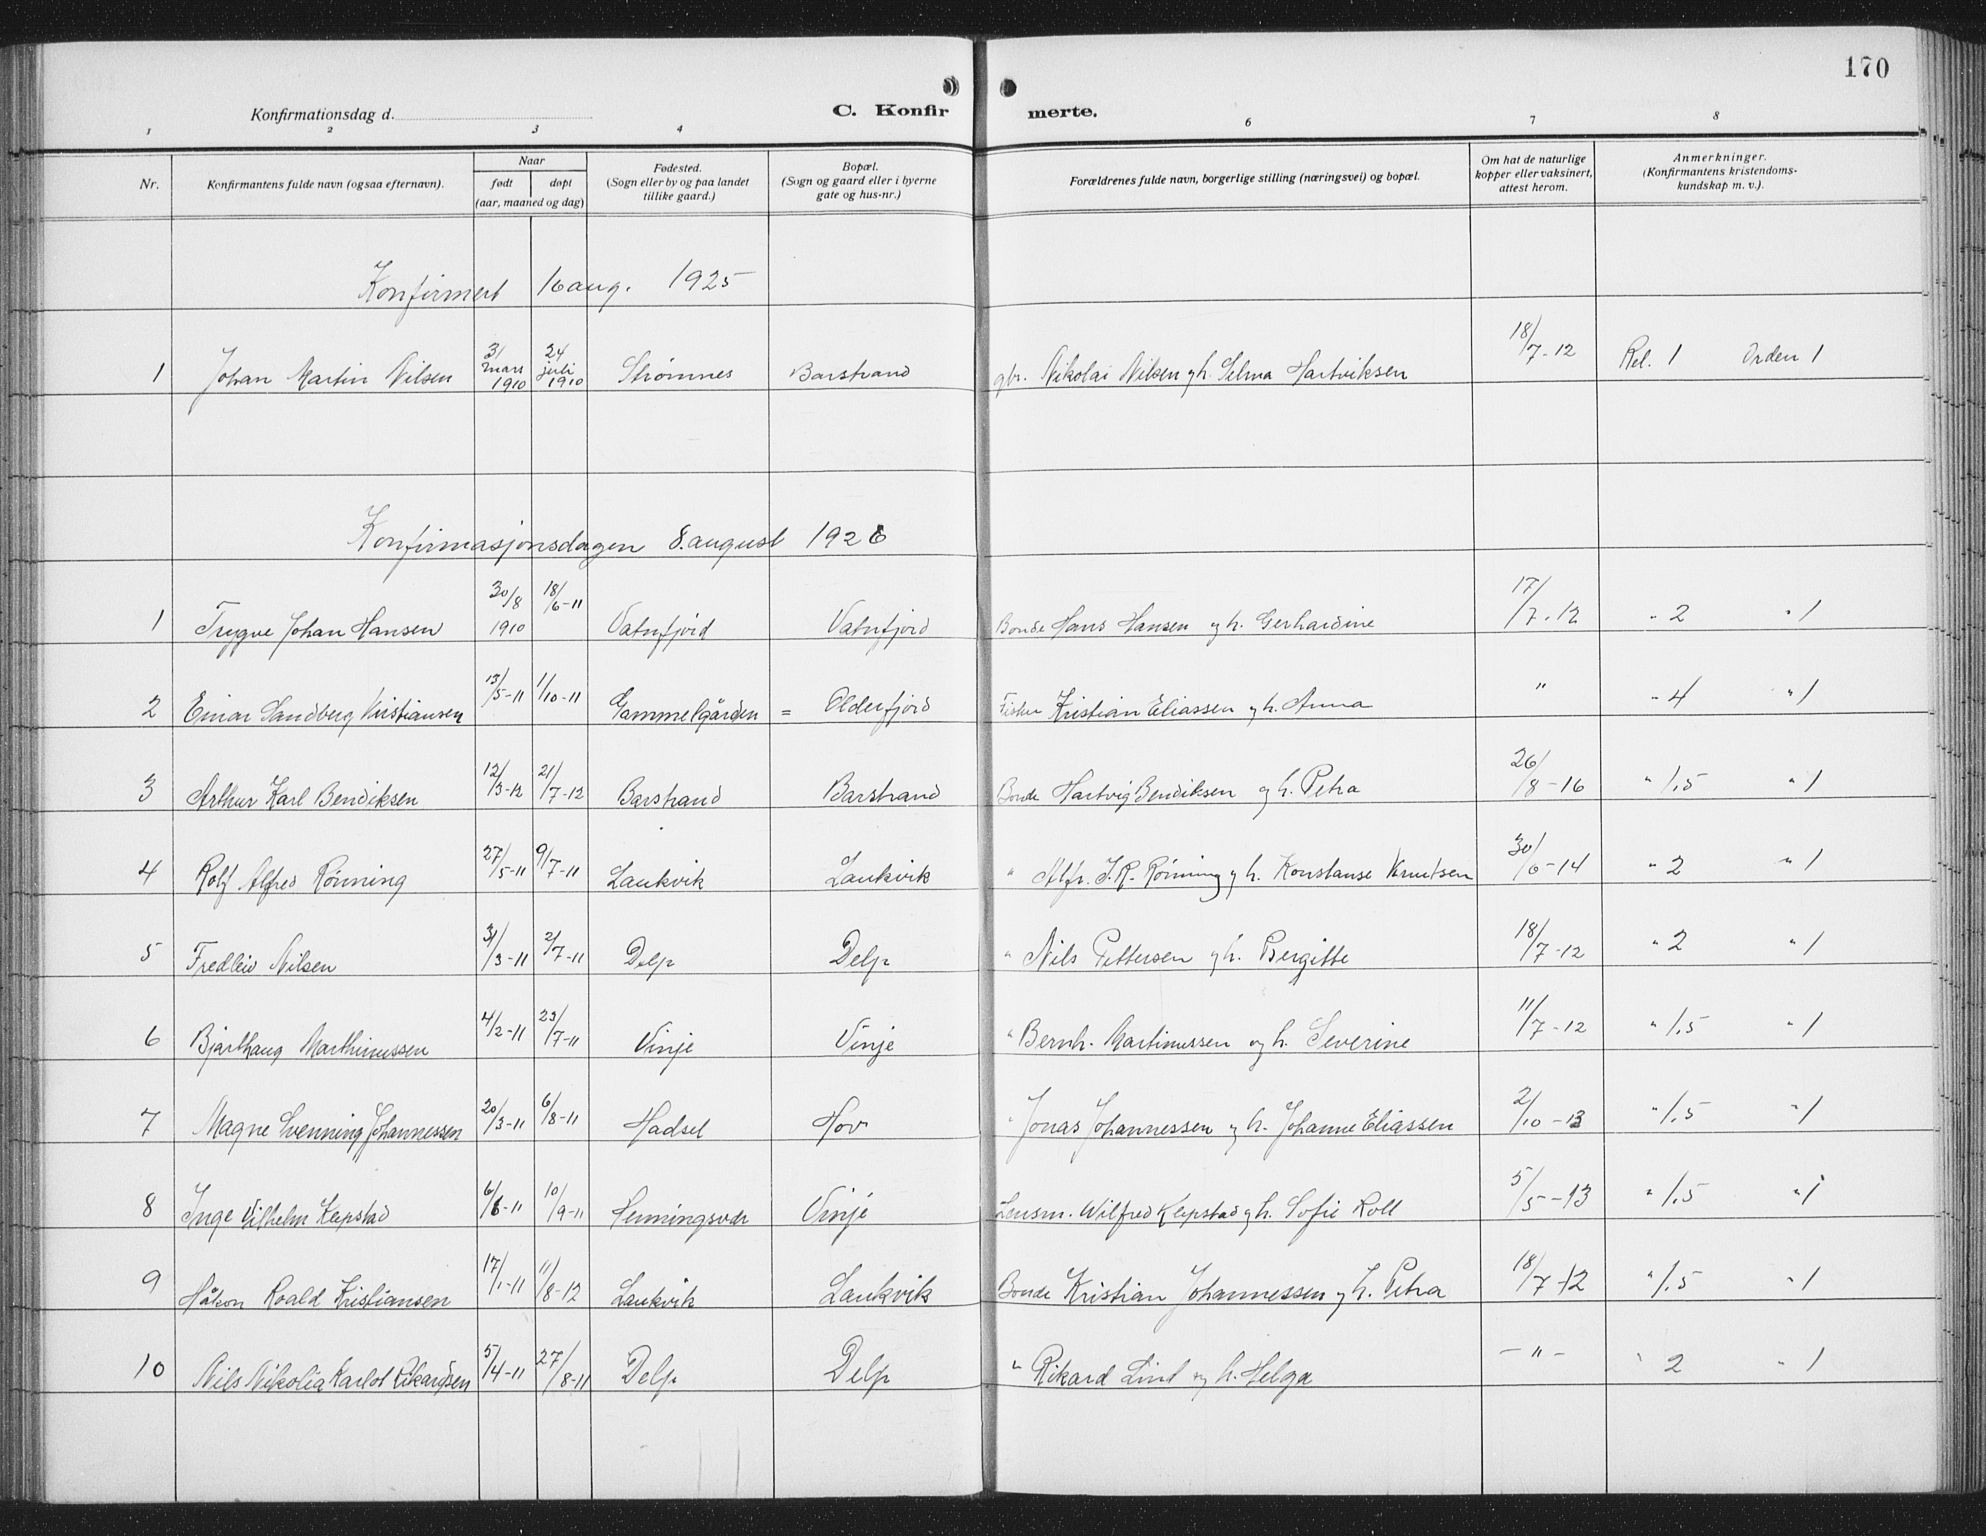 170
Konfirmationsdag d.
C. Konfirmerte.
1 2 3 4 6 7 8
Nr. Konfirmantens fulde navn (ogsaa efternavn). Naar født døpt (aar, maaned og dag) Fødested. (Sogn eller by og paa landet tillike gaard.) Bopæl. (Sogn og gaard eller i byerne gate og hus-nr.) Forældrenes fulde navn, borgerlige stilling (næringsvei) og bopæl. Om hat de naturlige kopper eller vaksinert, attest herom. Anmerkninger. (Konfirmantens kristendomskundskap m. v.).
Konfirmert 16 aug. 1925
1 Johan Martin Nilsen 31 mars 1910 24 juli 1910 Strømnes Barstrand gbr. Nikolai Nilsen og h. Selma Hartviksen 18/7-12 Rel. 1 Orden 1
Konfirmasjonsdagen 8. august 1926
1 Trygve Johan Hansen 30/8 1910 18/6-11 Vatnfjord Vatnfjord Bonde Hans Hansen og h. Gerhardine 17/7-12 " 2 " 1
2 Einar Sandberg Kristiansen 13/5-11 1/10-11 Gammelgården = Olderfjord Fisker Kristian Eliassen og h. Anna " " 4 " 1
3 Arthur Karl Bendiksen 12/3-12 21/7-12 Barstrand Barstrand Bonde Hartvig Bendiksen og h. Petra 26/8-16 " 1,5 " 1
4 Rolf Alfred Rønning 27/5-11 9/7-11 Laukvik Laukvik " Alfr. J. R. Rønning og h. Konstanse Knutsen 30/6-14 " 2 " 1
5 Fredleiv Nilsen 31/3-11 2/7-11 Delp Delp " Nils Pettersen og h. Bergitte 18/7-12 " 2 " 1
6 Bjarthaug Marthinussen 4/2-11 23/7-11 Vinje Vinje " Bernh. Martinussen og h. Severine 11/7-12 " 1,5 " 1
7 Magne Svenning Johannessen 20/3-11 6/8-11 Hadsel Hov " Jonas Johannessen og h. Johanne Eliassen 2/10-13 " 1,5 " 1
8 Inge Vilhelm Kapstad 6/6-11 10/9-11 Henningsvær Vinje Lensm. Wilfred Kapstad og h. Sofie Roll 5/5-13 " 1,5 " 1
9 Håkon Roald Kristiansen 17/1-11 11/8-12 Laukvik Laukvik Bonde Kristian Johannessen og h. Petra 18/7-12 " 1,5 " 1
10 Nils Nikolia Karlot Rikardsen 5/4-11 27/8-11 Delp Delp " Rikard Lind og h. Helga - " - " 2 " 1